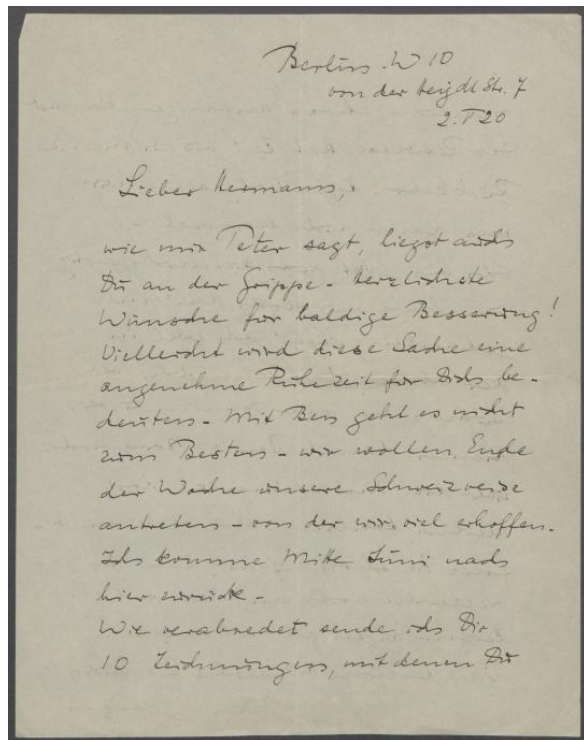 Berlin. W 10
von der Heydt Str. 7
2. V 20
Lieber Hermann,
wie mir Peter sagt, liegst auch
Du an der Grippe - Herzlichste
Wünsche für baldige Besserung!
Vielleicht wird diese Sache eine
angenehme Ruhezeit für Dich be-
deuten - Mit Ben geht es nicht
zum Besten - wir wollen Ende
der Woche unsere Schweizreise
antreten - von der wir viel erhoffen.
Ich komme Mitte Juni nach
hier zurück -
Wie verabredet sende ich Dir
10 Zeichnungen, mit denen Du